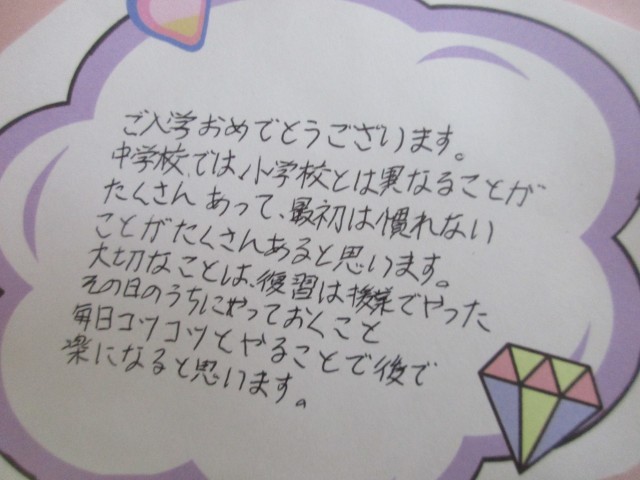 ご入学おめでとうございます。
中学校では、小学校とは異なることが
たくさんあって、最初は慣れない
ことがたくさんあると思います。
大切なことは、復習は授業でやった
その日のうちにやっておくこと
毎日コツコツとやることで後で
楽になると思います。